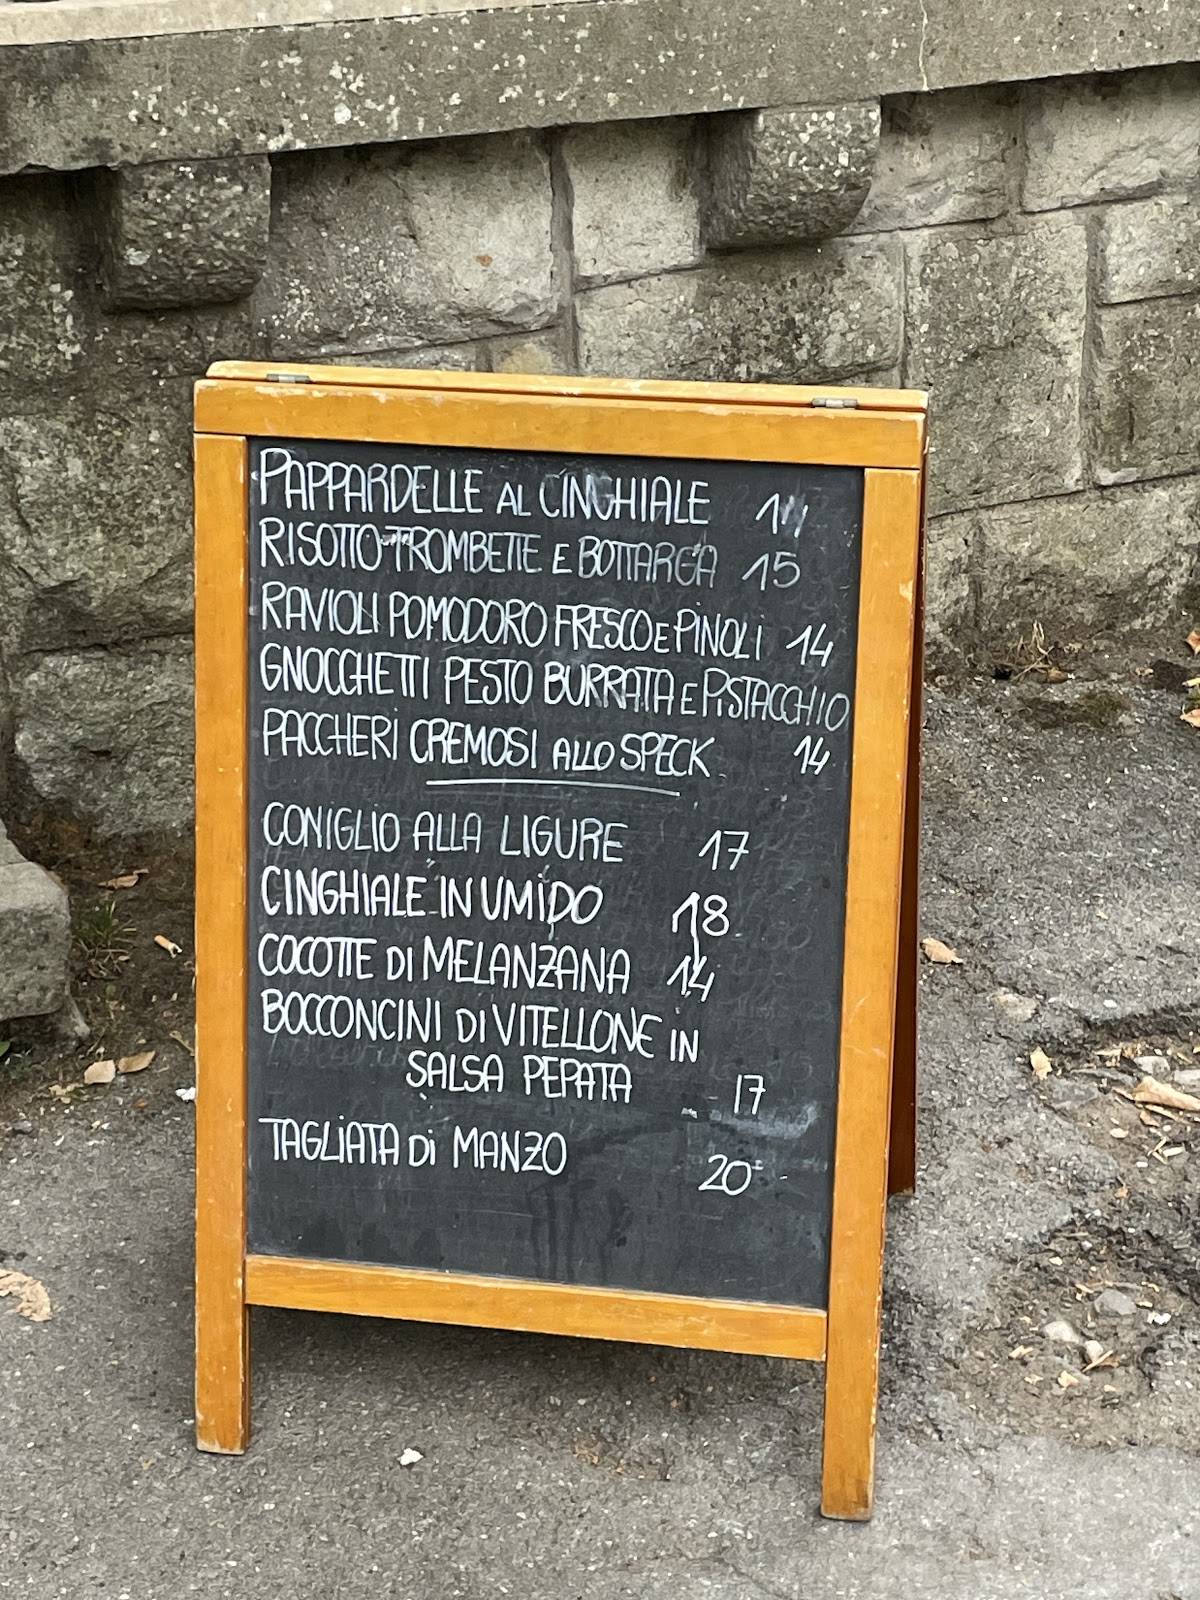 PAPPARDELLE AL CINGHIALE
RISOTTO TROMBETTE E BOTTARGA 15
RAVIOLI POMODORO FRESCO E PINOLI 14
GNOCCHETTI PESTO BURRATA E PISTACCHIO
PACCHERI CREMOSI ALLO SPECK 14
CONIGLIO ALLA LIGURE 17
CINGHIALE IN UMIDO 18
COCOTTE DI MELANZANA 14
BOCCONCINI DI VITELLONE IN
SALSA PEPATA 17
TAGLIATA DI MANZO 20